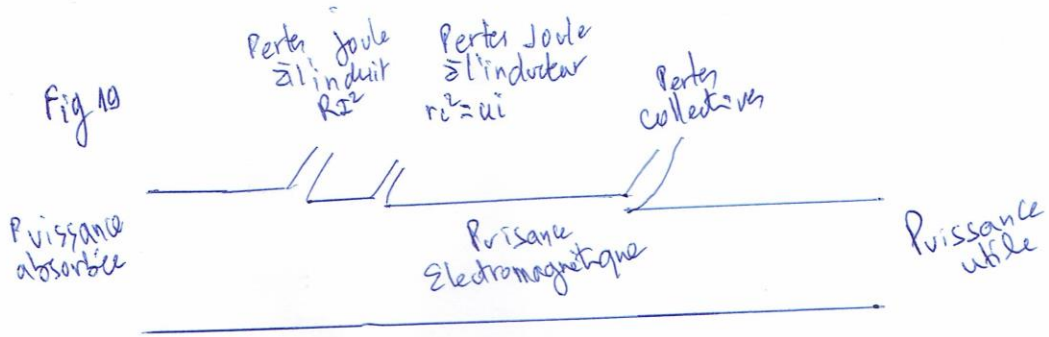 Fig 19
Pertes joule
à l'induit
RI²
Pertes Joule
à l'inducteur
ri²=ui
Pertes
collectives
Puissance
absorbée
Puisance
Electromagnétique
Puissance
utile